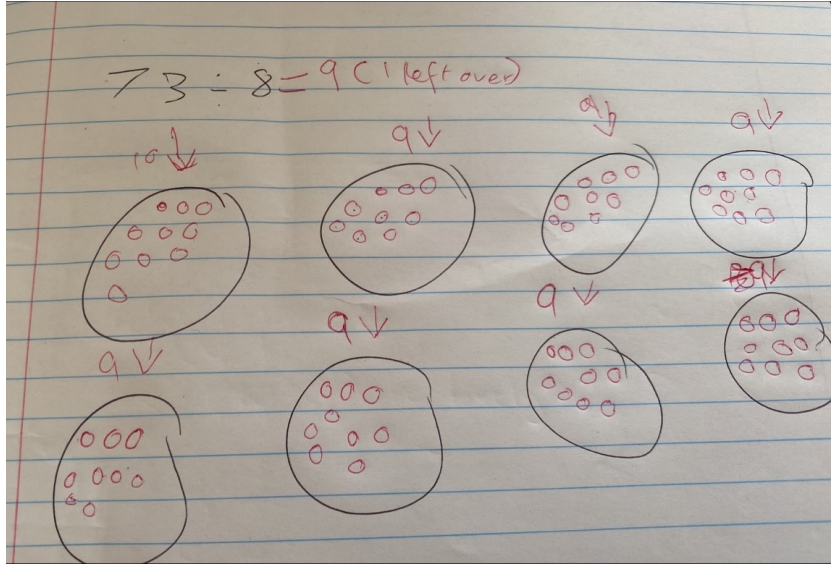 73 ÷ 8 = 9 (1 left over)
10 9 9 9
9 9 9 9